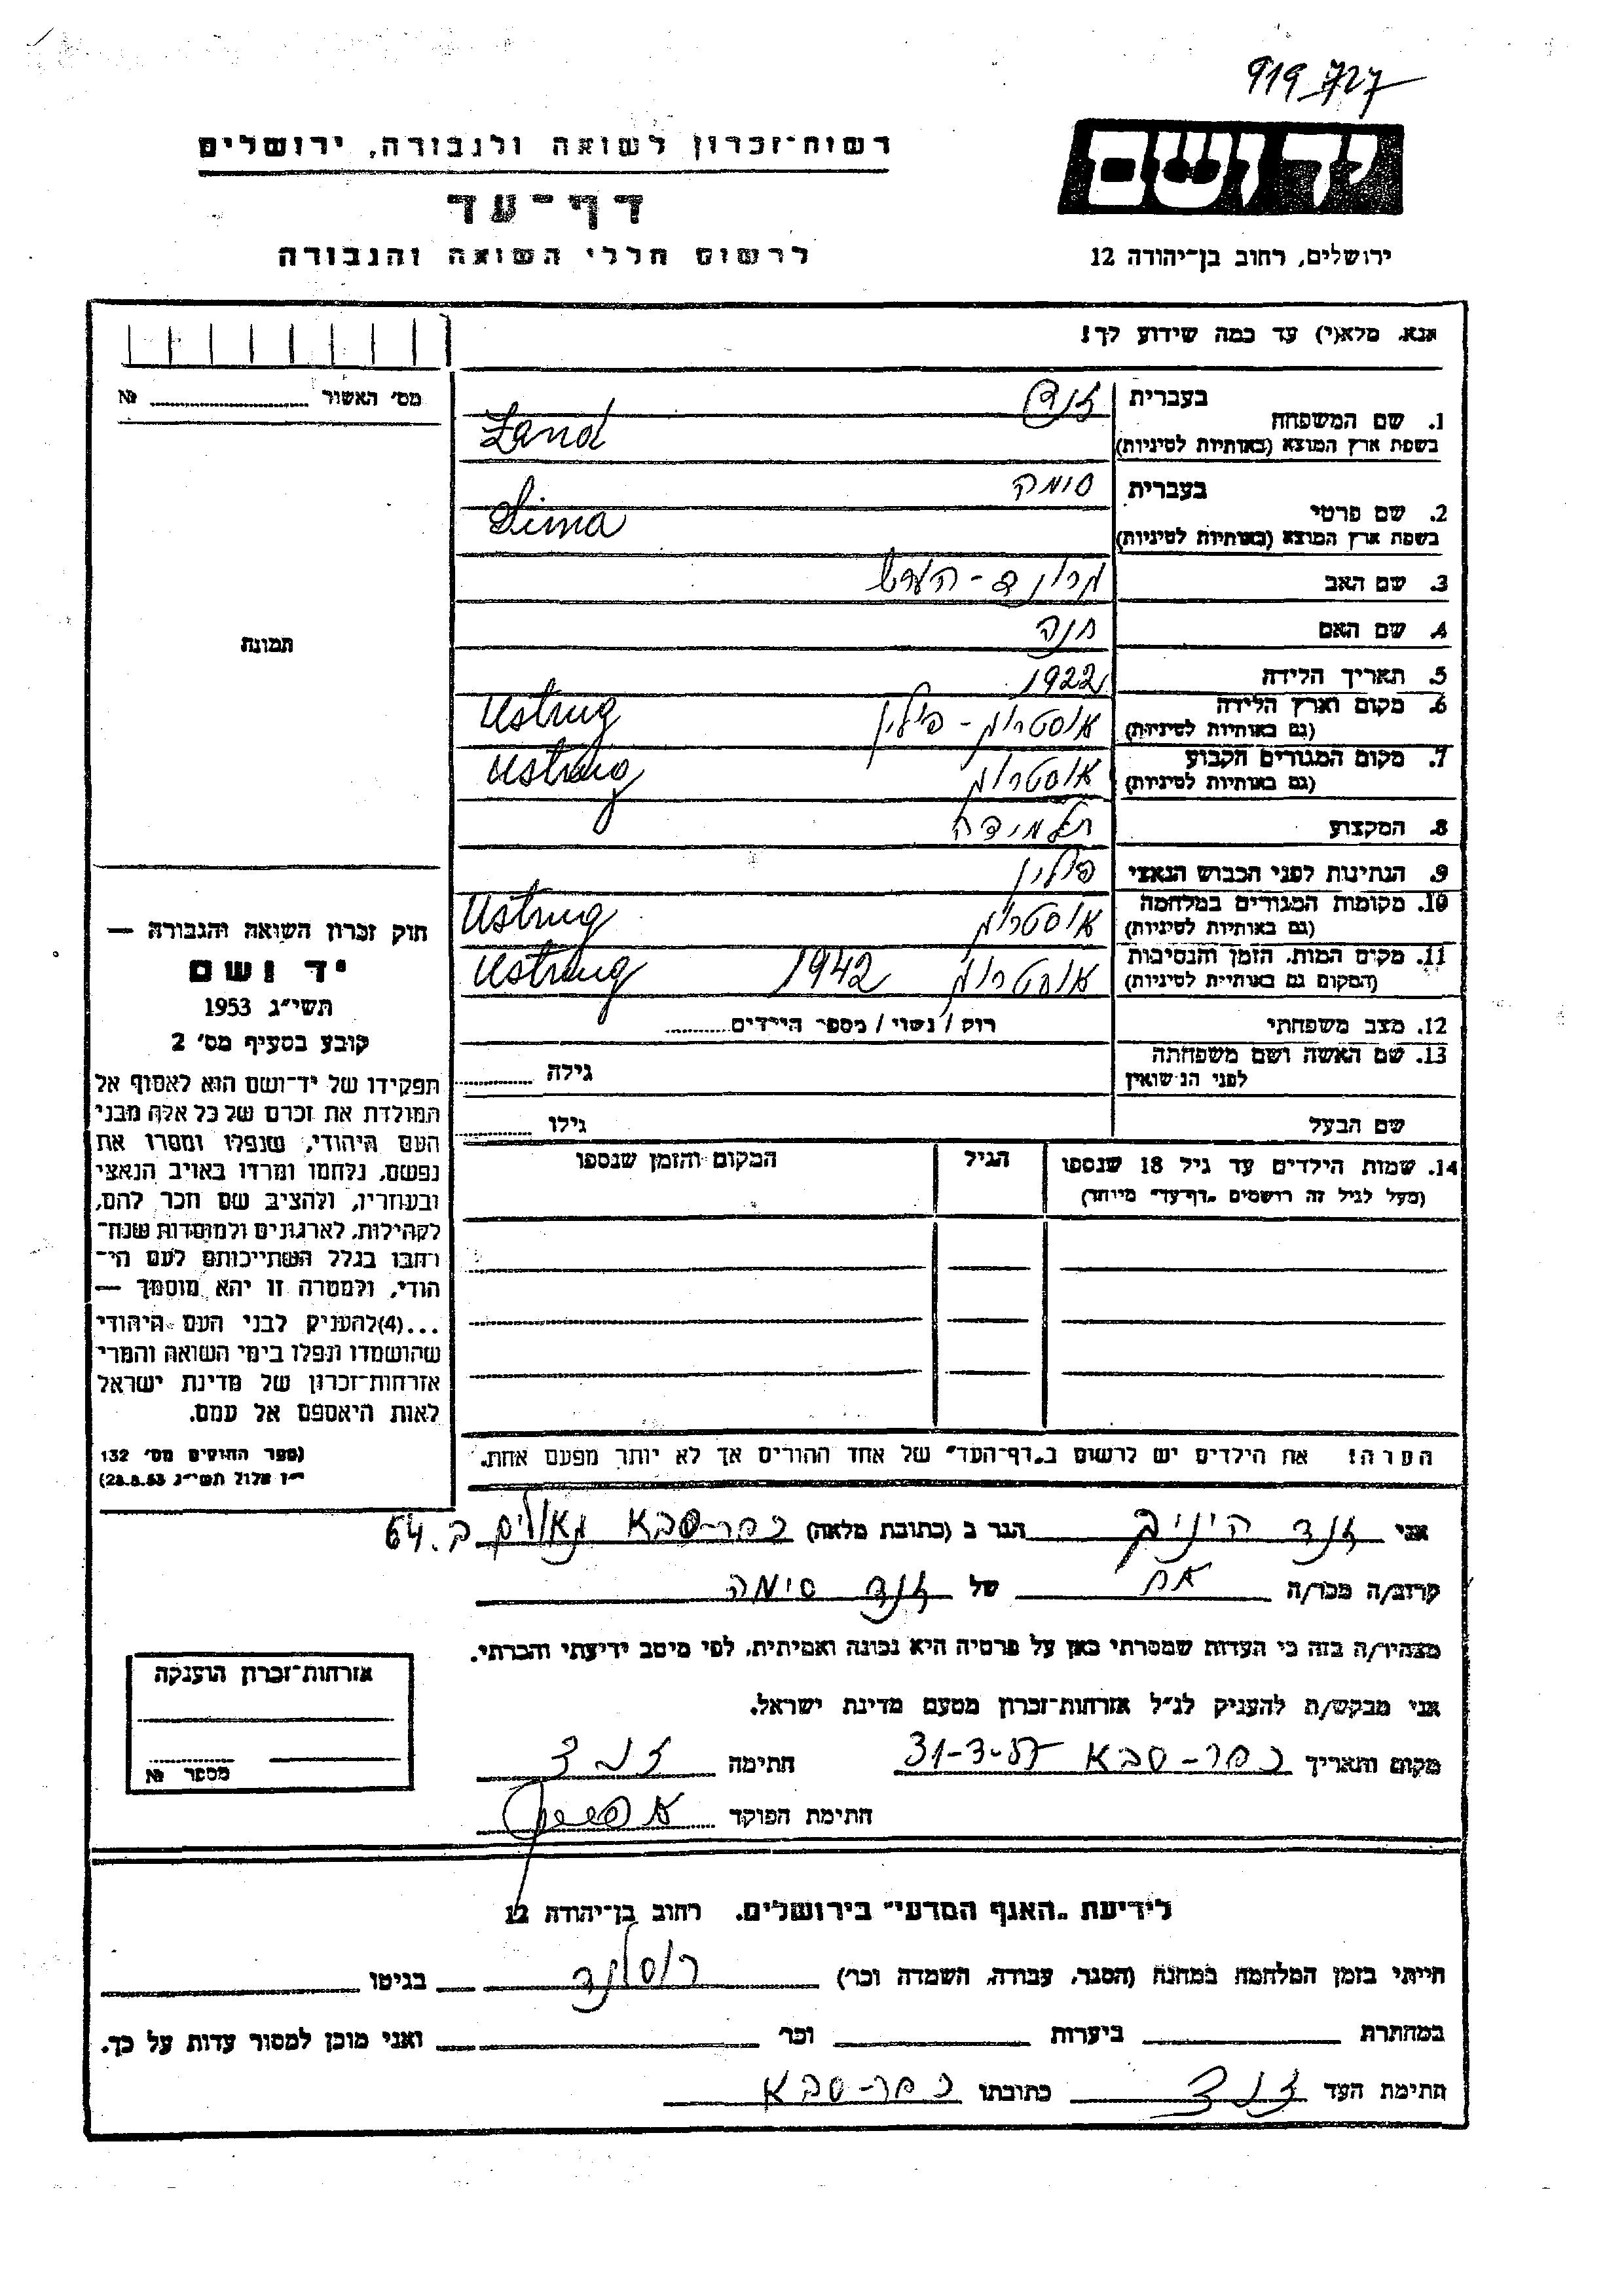 919727
יד ושם
רשות־זכרון לשואה ולגבורה, ירושלים
דף־עד
לרשום חללי השואה והגבורה
ירושלים, רחוב בן־יהודה 12
אנא, מלא(י) עד כמה שידוע לך!
מס׳ האשור № ..........
תמונה
1. שם המשפחה
בעברית זנד
בשפת ארץ המוצא (באותיות לטיניות) Zand
2. שם פרטי
בעברית סימה
בשפת ארץ המוצא (באותיות לטיניות) Sima
3. שם האב הערש
4. שם האם חנה
5. תאריך הלידה 1922
6. מקום וארץ הלידה אוסטרוג - פולין Ustrug
(גם באותיות לטיניות)
7. מקום המגורים הקבוע אוסטרוג Ustrug
(גם באותיות לטיניות)
8. המקצוע תלמידה
9. הנתינות לפני הכבוש הנאצי פולין
10. מקומות המגורים במלחמה אוסטרוג Ustrug
(גם באותיות לטיניות)
11. מקום המות, הזמן והנסיבות אוסטרוג 1942 Ustrug
(המקום גם באותיות לטיניות)
12. מצב משפחתי רוק / נשוי / מספר הילדים..........
13. שם האשה ושם משפחתה
לפני הנישואין גילה ..........
שם הבעל גילו ..........
14. שמות הילדים עד גיל 18 שנספו הגיל המקום והזמן שנספו
(מעל לגיל זה רושמים „דף־עד״ מיוחד)
הערה: את הילדים יש לרשום ב„דף־העד״ של אחד ההורים אך לא יותר מפעם אחת.
חוק זכרון השואה והגבורה —
יד ושם
תשי״ג 1953
קובע בסעיף מס׳ 2
תפקידו של יד־ושם הוא לאסוף אל
המולדת את זכרם של כל אלה מבני
העם היהודי, שנפלו ומסרו את
נפשם, נלחמו ומרדו באויב הנאצי
ובעוזריו, ולהציב שם וזכר להם,
לקהילות, לארגונים ולמוסדות שנח־
רבו בגלל השתייכותם לעם הי־
הודי, ולמטרה זו יהא מוסמך —
...(4)להעניק לבני העם היהודי
שהושמדו ונפלו בימי השואה והמרי
אזרחות־זכרון של מדינת ישראל
לאות היאספם אל עמם.
(ספר החוקים מס׳ 132
י״ז אלול תשי״ג 28.8.53)
אני זנד הגר ב (כתובת מלאה) כפר-סבא גאולים ב. 64
קרוב/ה מכר/ה אח של זנד סימה
מצהיר/ה בזה כי העדות שמסרתי כאן על פרטיה היא נכונה ואמיתית, לפי מיטב ידיעתי והכרתי.
אני מבקש/ת להעניק לנ״ל אזרחות־זכרון מטעם מדינת ישראל.
מקום ותאריך כפר-סבא 31-3-57 חתימה זנד
חתימת הפוקד
אזרחות־זכרון הוענקה
מספר №
לידיעת „האגף המדעי״ בירושלים. רחוב בן־יהודה 12
הייתי בזמן המלחמה במחנה (הסגר, עבודה, השמדה וכו׳) רוסלנד בגיטו
במחתרת ביערות וכו׳ ואני מוכן למסור עדות על כך.
חתימת העד זנד כתובתו כפר-סבא